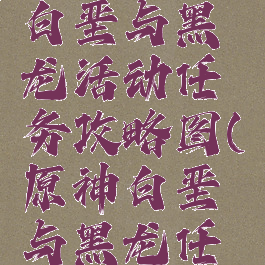 白垩与黑
龙活动任
务攻略图(
原神白垩
与黑龙任